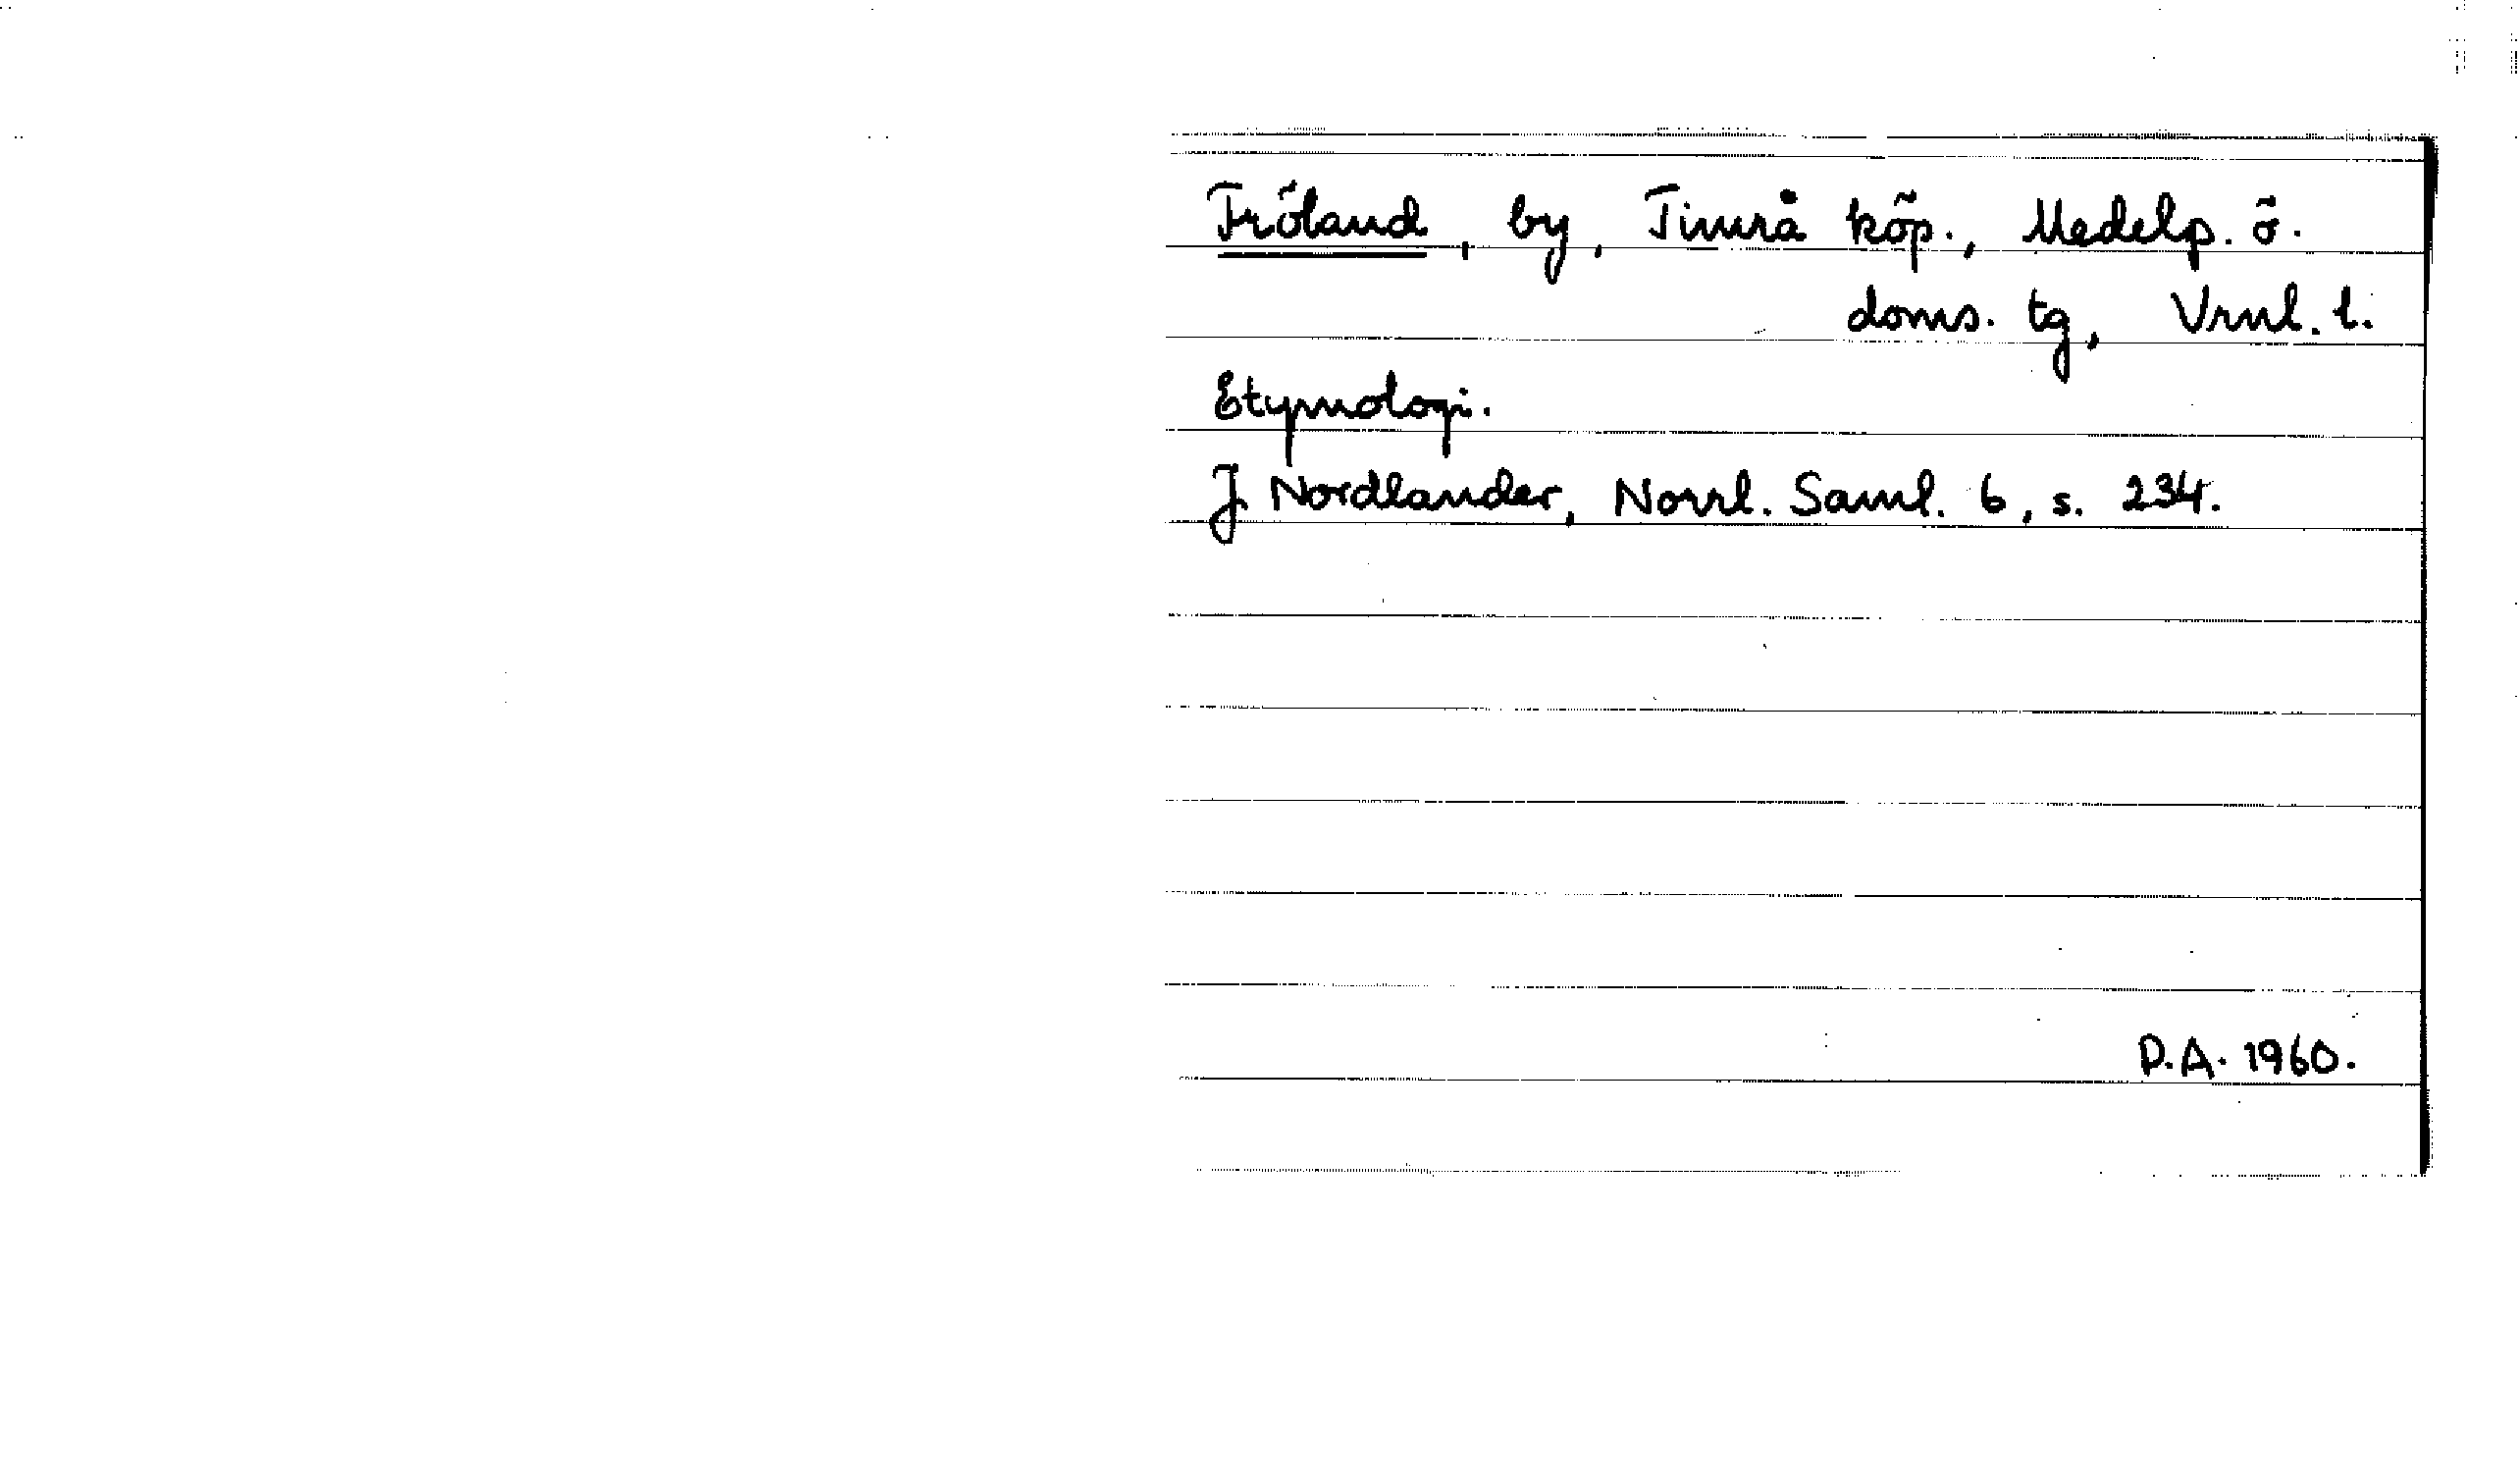 Fröland, by, Timrå köp., Medelp. ö.
doms. tg, Vrnl. l.
Etymologi.
J Nordlander, Norrl. Saml. 6, s. 234.
D.A. 1960.